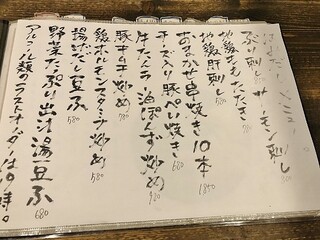 ぶり刺し サーモン刺し
地鶏もも たたき 780
地鶏肝刺し
串焼き10本 1850
チーズ入り豚ぺい焼き 680
牛たんラ油ぽんず炒め 980
豚キムチ炒め 780
鶏ホルモンスタミナ炒め 580
揚げだし豆ふ 580
野菜たっぷり出汁湯豆ふ 680
アルコール類のラストオーダーは9時。